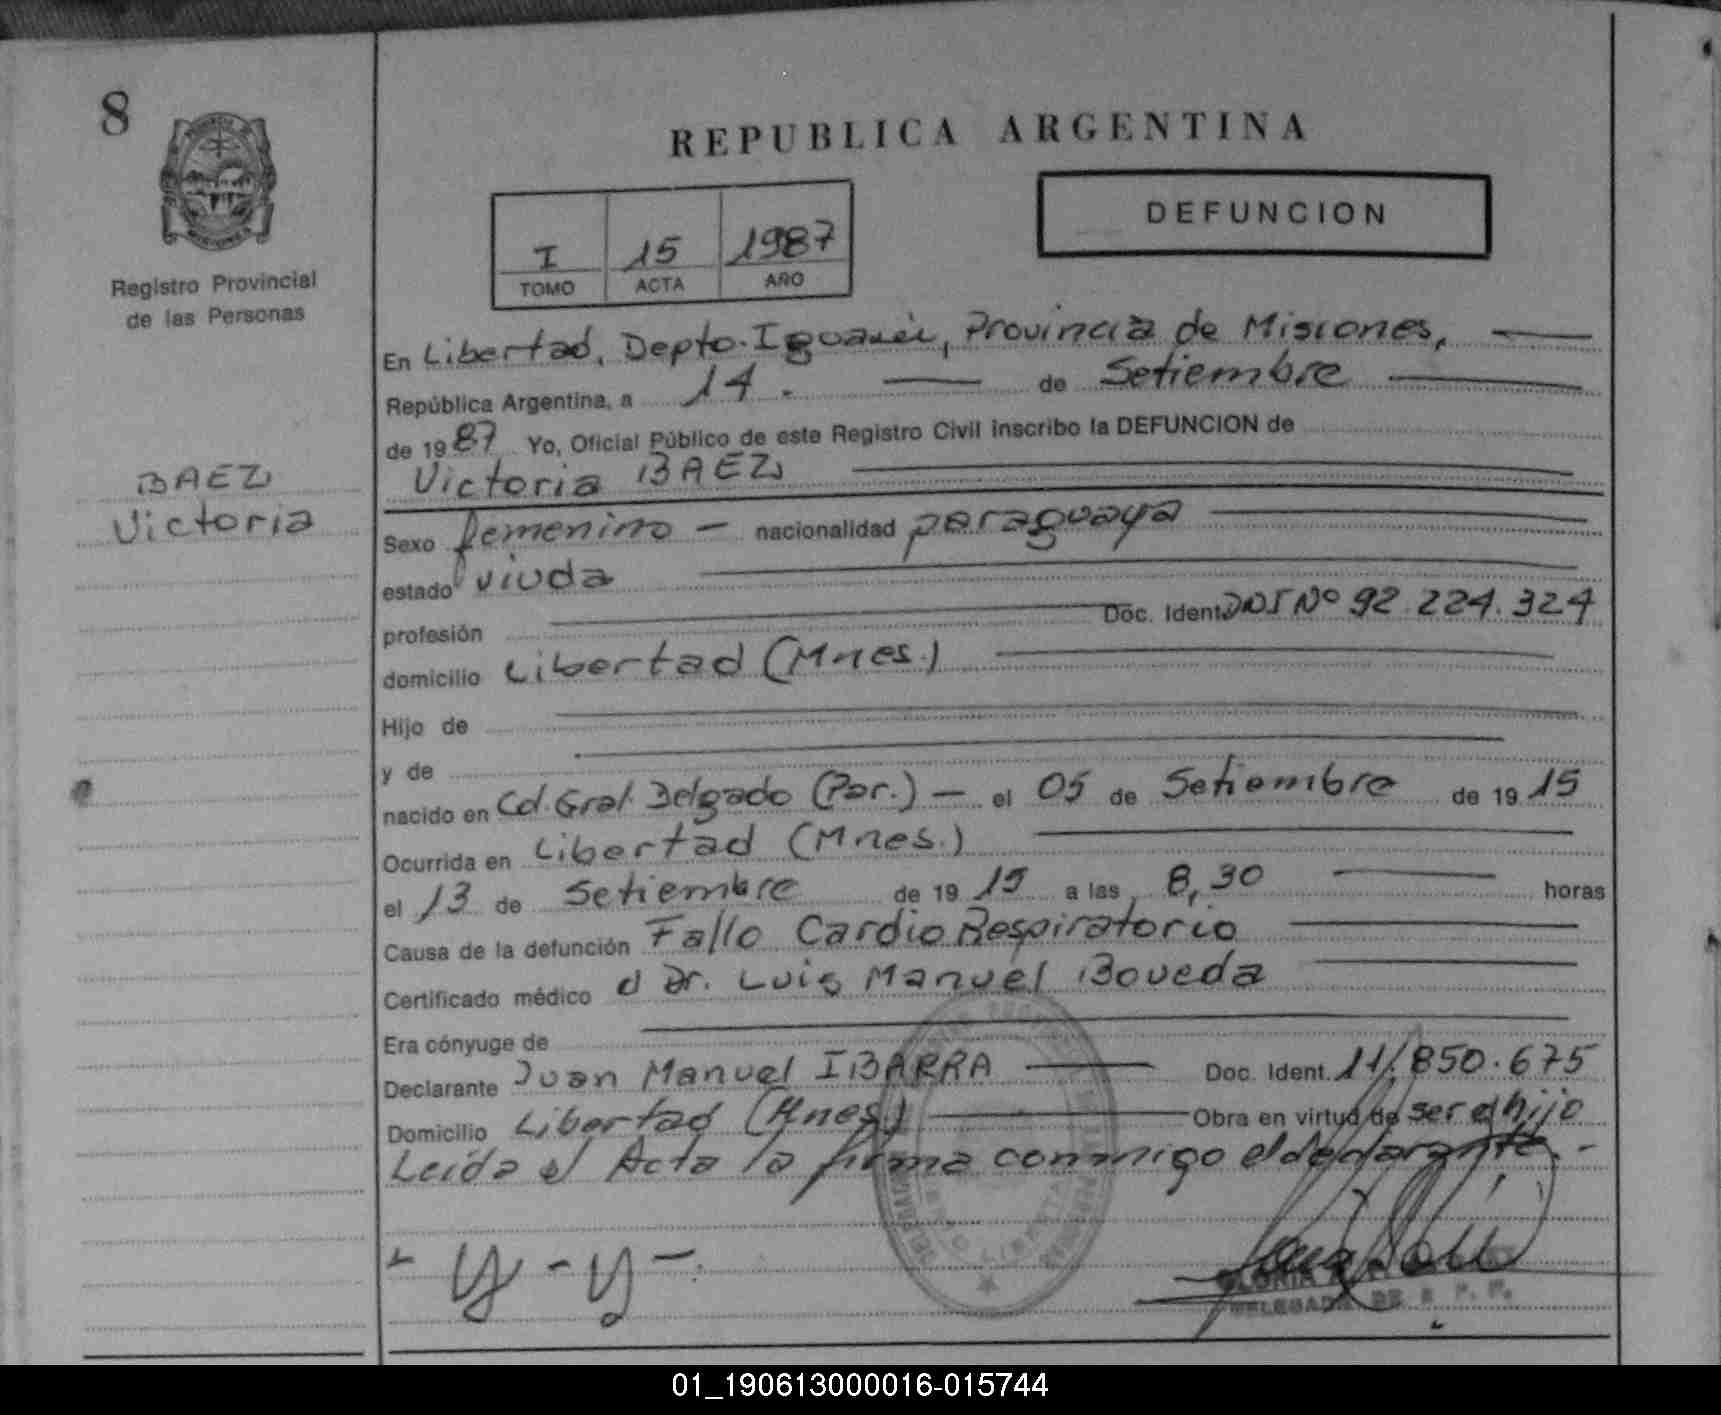 8
REPUBLICA ARGENTINA
DEFUNCION
I 15 1987
TOMO ACTA AÑO
Registro Provincial
de las Personas
En Libertad, Depto. Iguazú, Provincia de Misiones,
República Argentina, a 14. de Setiembre
de 1987 Yo, Oficial Público de este Registro Civil inscribo la DEFUNCION de
BAEZ
Victoria
Victoria BAEZ
Sexo femenino - nacionalidad paraguaya
estado viuda
profesión Doc. Ident. DNI Nº 92.224.324
domicilio Libertad (Mnes.)
Hijo de
y de
nacido en Cd. Gral. Delgado (Par.) - el 05 de Setiembre de 1915
Ocurrida en Libertad (Mnes.)
el 13 de Setiembre de 1915 a las 8,30 horas
Causa de la defunción Fallo Cardio Respiratorio
Certificado médico d Dr. Luis Manuel Boveda
Era cónyuge de
Declarante Juan Manuel IBARRA Doc. Ident. 11.850.675
Domicilio Libertad (Mnes.) Obra en virtud de ser el hijo
Leída el Acta la firma conmigo el declarante. -
GLORIA
DELEGADA DE R. P. P.
01_190613000016-015744